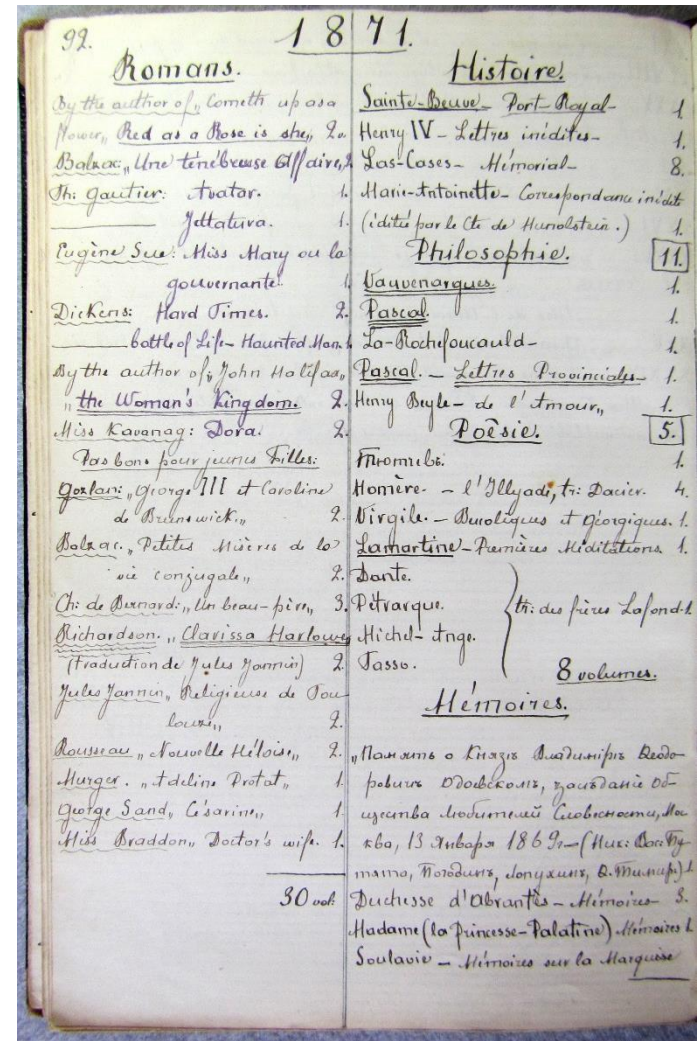 92.
1871.
Romans.
By the author of „Cometh up as a
flower„ Red as a Rose is she„ 2.
Balzac: „Une ténébreuse Affaire„ 2.
Th: Gautier: Avatar. 1.
——— Jettatura. 1.
Eugène Sue: Miss Mary ou la
gouvernante. 1.
Dickens: Hard Times. 2.
——— battle of Life – Haunted Man. 1.
By the author of „John Halifax„
„the Woman's Kingdom. 2.
Miss Kavanag: Dora. 2.
Pas bons pour jeunes Filles:
Gozlan: „George III et Caroline
de Brunswick„ 2.
Balzac. „Petites Misères de la
vie conjugale„ 2.
Ch: de Bernard: „Un beau-père„ 3.
Richardson. „Clarissa Harlowe„
(traduction de Jules Jannin) 2.
Jules Jannin „Religieuse de Tou-
louse„ 2.
Rousseau „Nouvelle Héloïse„ 2.
Murger. „Adeline Protat„ 1.
George Sand „Césarine„ 1.
Miss Braddon „Doctor's wife. 1.
30 vol:
Histoire.
Sainte-Beuve – Port-Royal – 1.
Henry IV – Lettres inédites – 1.
Las-Cases – Mémorial – 8.
Marie-Antoinette – Correspondance inédit
(éditée par le Cte de Hunolstein.) 1.
Philosophie. 11.
Vauvenargues. 1.
Pascal. 1.
La-Rochefoucauld – 1.
Pascal. – Lettres Provinciales – 1.
Henry Beyle – de l'Amour„ 1.
Poësie. 5.
Тютчевъ. 1.
Homère – l'Illyade, tr: Dacier. 4.
Virgile. – Bucoliques et Géorgiques. 1.
Lamartine – Premières Méditations. 1.
Dante.
Pétrarque.
Michel-Ange.
Tasso.
tr: des frères Lafond. 1.
8 volumes.
Mémoires.
„Память о Князѣ Владимірѣ Ѳедо-
ровичѣ Одоевскомъ, засѣданіе Об-
щества Любителей Словесности, Мос
ква, 13 Января 1869г – (Ник: Вас: Пу-
тято, Погодинъ, Лопухинъ, Ѳ. Тимир:) 1.
Duchesse d'Abrantès – Mémoires – 3.
Madame (la Princesse-Palatine) Mémoires 1.
Soulavie – Mémoires sur la Marquise